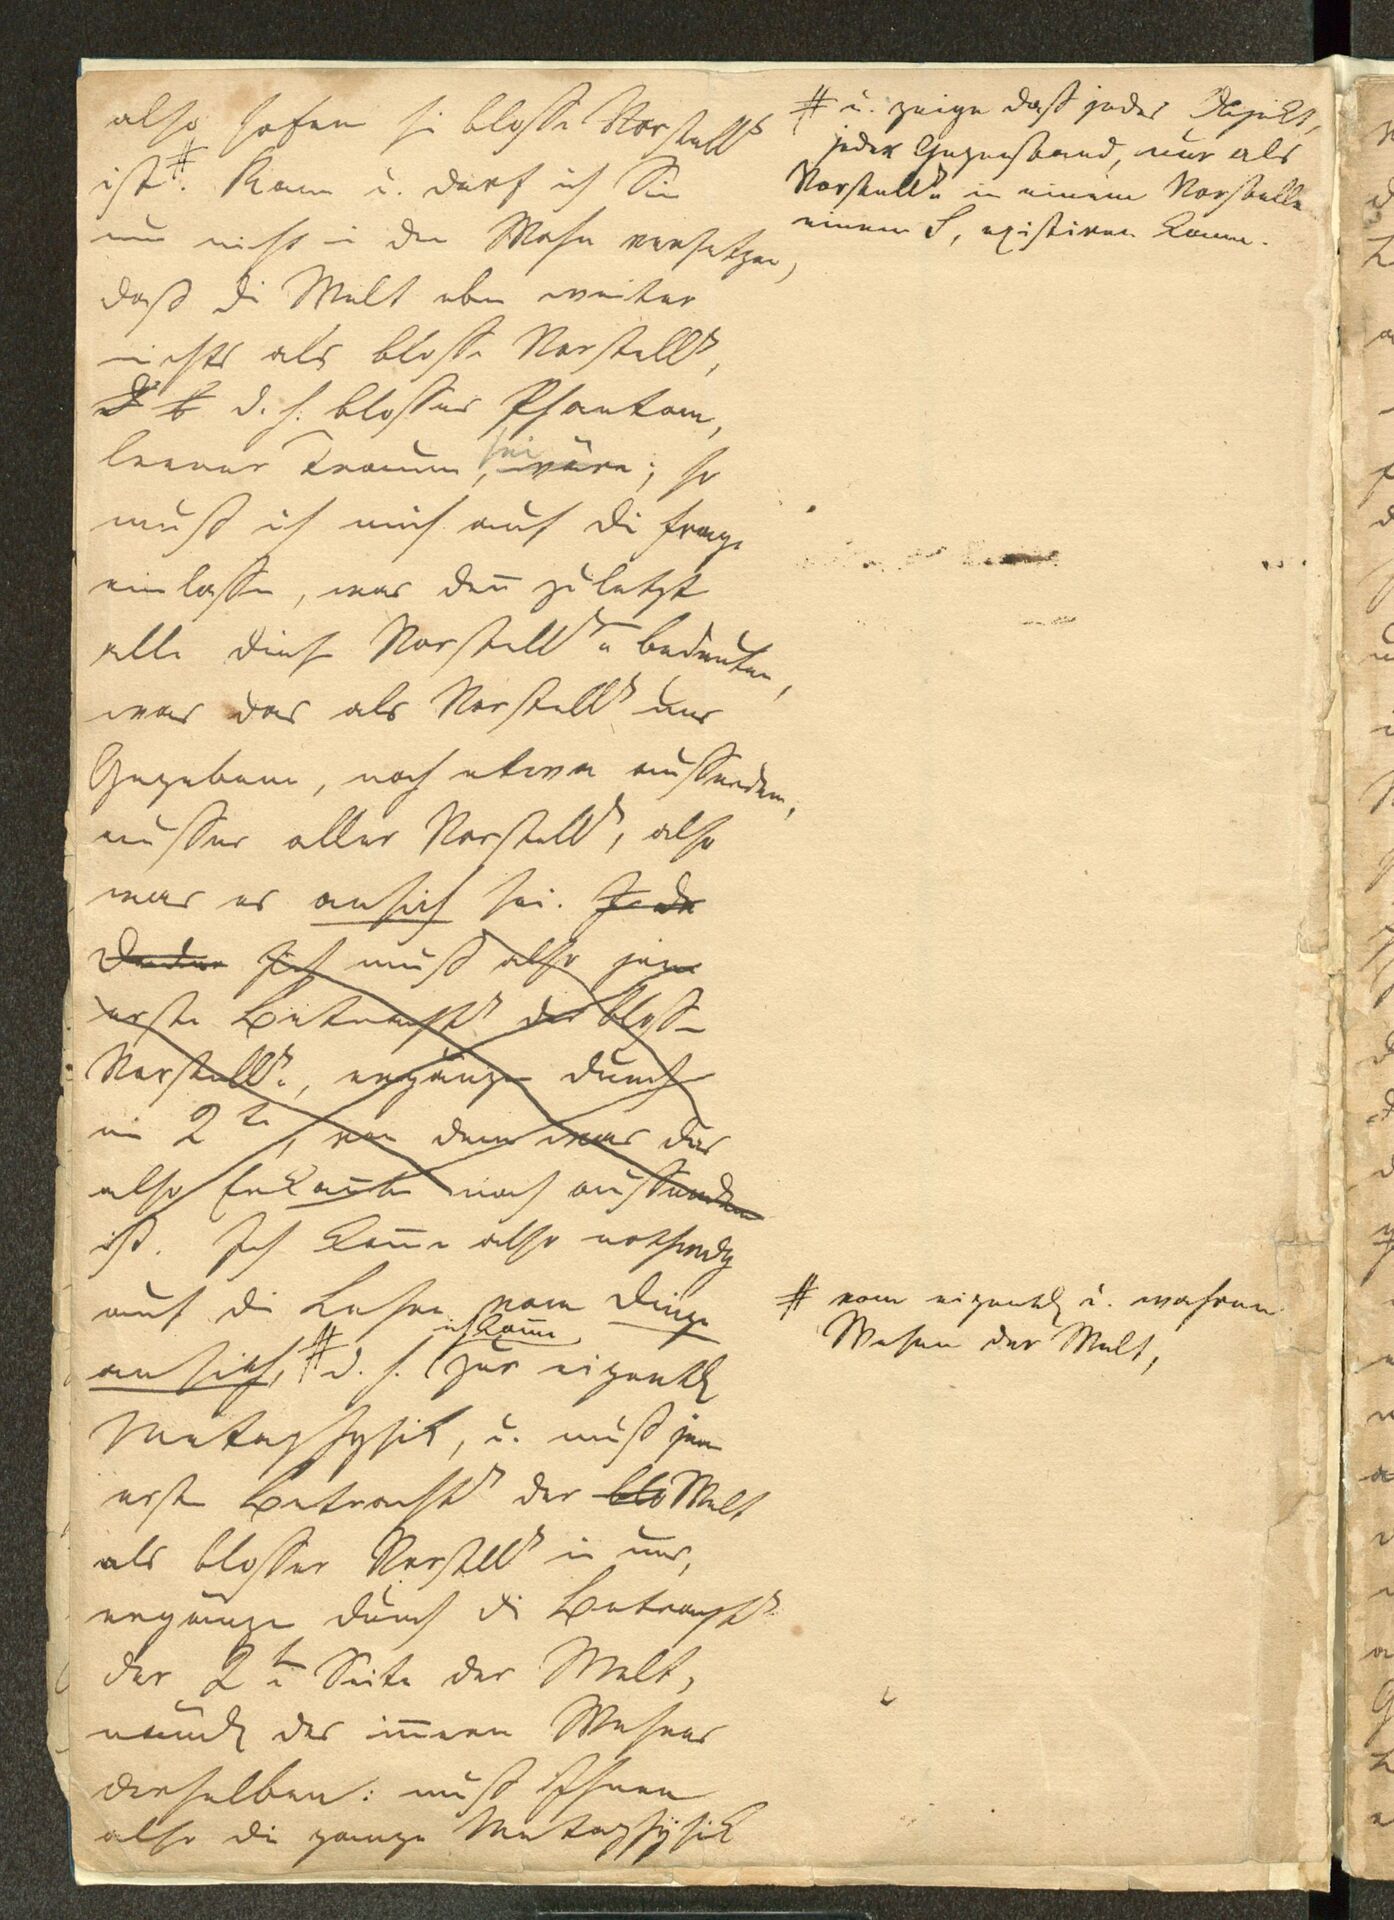 also sofern sie bloße Vorstellg
ist#. Kann u. darf ich Sie
nun nicht in den Wahn versetzen,
daß die Welt eben weiter
nichts als bloße Vorstellg,
d. h. bloßes Phantom,
leerer Traum, sei wäre; so
muß ich mich auf die Frage
einlassen, was deñ zuletzt
alle diese Vorstellgn bedeuten,
was das als Vorstellg uns
Gegebene, noch etwa außerdem,
außer aller Vorstellg, also
was es ansich sei. Jede
Daher Ich muß also jene
erste Betrachtg der bloßen
Vorstellg, ergänzen durch
eine 2te, von dem was das
also Erkañte noch außerdem
ist. Ich kom̃e also nothwendig
auf die Lehre vom Dinge
ansich, # d. h. ich kom̃e zur eigentl
Metaphysik, u. muß jene
erste Betrachtg der blo Welt
als bloßer Vorstellg in uns,
ergänzen durch die Betrachtg
der 2ten Seite der Welt,
nämlich des iñern Wesens
derselben: muß Ihnen
also die ganze Metaphysik
# u. zeige daß jedes Objekt,
jeder Gegenstand, nur als
Vorstellg in einem Vorstelle
einem S, existiren kann.
# vom eigentl u. wahren
Wesen der Welt,